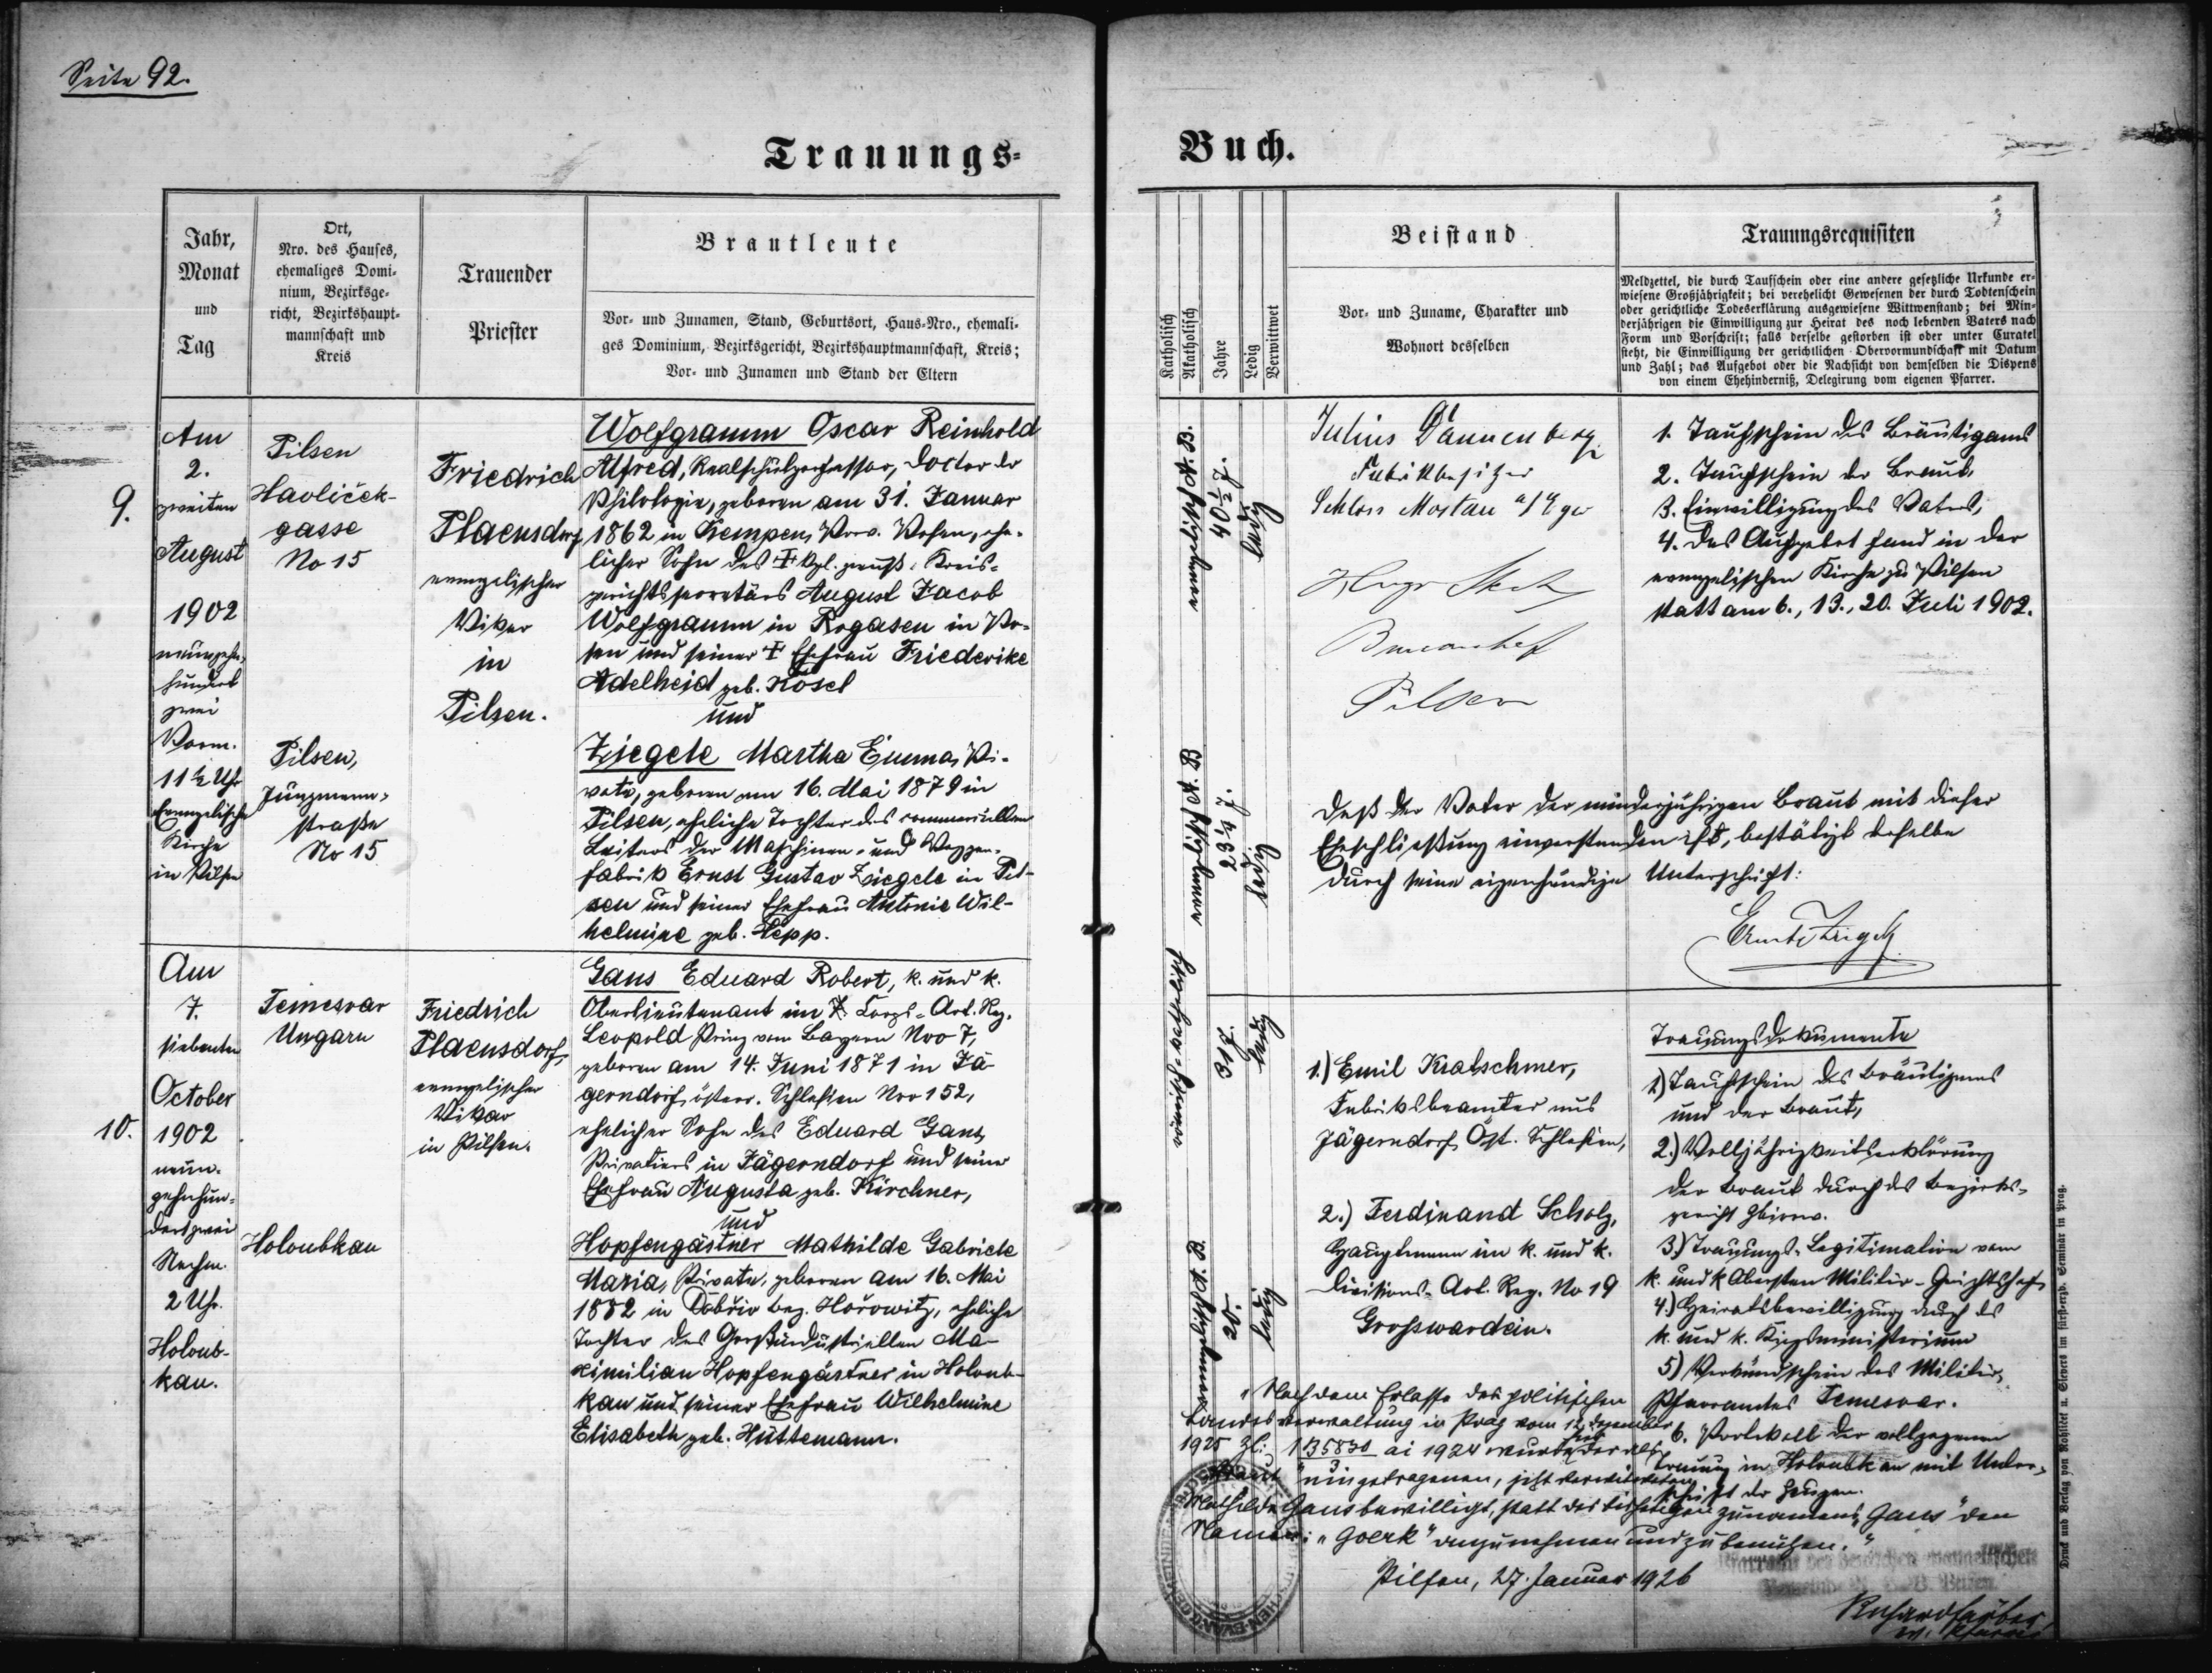 Seite 92.
Trauungs-
Buch.
Jahr,
Monat
und
Tag
Ort,
Nro. des Hauses,
ehemaliges Domi-
nium, Bezirksge-
richt, Bezirkshaupt-
mannschaft und
Kreis
Trauender
Priester
Brautleute
Vor- und Zunamen, Stand, Geburtsort, Haus-Nro., ehemali-
ges Dominium, Bezirksgericht, Bezirkshauptmannschaft, Kreis;
Vor- und Zunamen und Stand der Eltern
Katholisch
Akatholisch
Jahre
Ledig
Verwittwet
Beistand
Vor- und Zuname, Charakter und
Wohnort desselben
Trauungsrequisiten
Meldzettel, die durch Taufschein oder eine andere gesetzliche Urkunde er-
wiesene Großjährigkeit; bei verehelicht Gewesenen der durch Todtenschein
oder gerichtliche Todeserklärung ausgewiesene Wittwenstand; bei Min-
derjährigen die Einwilligung zur Heirat des noch lebenden Vaters nach
Form und Vorschrift; falls derselbe gestorben ist oder unter Curatel
steht, die Einwilligung der gerichtlichen Obervormundschaft mit Datum
und Zahl; das Aufgebot oder die Nachsicht von demselben die Dispens
von einem Ehehinderniß, Delegirung vom eigenen Pfarrer.
9.
Am
2.
zweiten
August
1902
neunzehn-
hundert
zwei
Vorm.
11 ½ Uhr
Evangelische
Kirche
in Pilsen
Pilsen
Havliček-
gasse
No 15
Pilsen,
Jungmann-
straße
No 15
Friedrich
Plaensdorf
evangelischer
Vikar
in
Pilsen.
Wolfgramm Oscar Reinhold
Alfred, Realschulprofessor, Doctor der
Philologie, geboren am 31. Januar
1862 in Kempen, Prov. Posen, ehe-
licher Sohn des † kgl. preuß. Kreis-
gerichtssecretärs August Jacob
Wolfgramm in Rogasen in Po-
sen und seiner † Ehefrau Friederike
Adelheid geb. Kösel
und
Ziegele Martha Emma, Pri-
vate, geboren am 16. Mai 1879 in
Pilsen, eheliche Tochter des commerciellen
Leiters der Maschinen- und Waggon-
fabrik Ernst Gustav Ziegele in Pil-
sen und seiner Ehefrau Antonie Wil-
helmine geb. Hepp.
evangelisch A. B.
40 ½ J.
ledig
evangelisch A. B
23 ¼ J.
ledig
Julius Dannenberg
Fabrikbesitzer
Schloss Mostau a/Eger
Hugo
Pilsen
1. Taufschein des Bräutigams
2. Taufschein der Braut,
3. Einwilligung des Vaters,
4. Das Aufgebot fand in der
evangelischen Kirche zu Pilsen
statt am 6., 13., 20. Juli 1902.
Daß der Vater der minderjährigen Braut mit dieser
Eheschließung einverstanden ist, bestätigt derselbe
durch seine eigenhändige Unterschrift:
Ernst Ziegele
10.
Am
7.
siebenten
October
1902
neun-
zehnhun-
dertzwei
Nachm.
2 Uhr.
Holoub-
kau.
Temesvar
Ungarn
Holoubkau
Friedrich
Plaensdorf,
evangelischer
Vikar
in Pilsen.
Gans Eduard Robert, k. und k.
Oberlieutenant im 7. Corps-Art. Reg.
Leopold Prinz von Bayern Nro 7,
geboren am 14. Juni 1871 in Jä-
gerndorf, österr. Schlesien Nro 152,
ehelicher Sohn des Eduard Gans,
Privatiers in Jägerndorf und seiner
Ehefrau Augusta geb. Kirchner,
und
Hopfengärtner Mathilde Gabriele
Maria, Private, geboren am 16. Mai
1882 in Dobřiv bez. Hořowitz, eheliche
Tochter des Großindustriellen Ma-
ximilian Hopfengärtner in Holoub-
kau und seiner Ehefrau Wilhelmine
Elisabeth geb. Hüttemann.
römisch-katholisch
31 J.
ledig
evangelisch A. B.
20.
ledig
1.) Emil Kratschmer,
Fabriksbeamter aus
Jägerndorf, Öst. Schlesien,
2.) Ferdinand Scholz,
Hauptmann im k. und k.
Divisions-Art. Reg. No 19
Grosswardein.
Trauungsdokumente
1.) Taufschein des Bräutigams
und der Braut,
2.) Volljährigkeitserklärung
der Braut durch das Bezirks-
gericht Zbirow.
3.) Trauungs-Legitimation vom
k. und k Obersten Militär-Gerichtshof,
4.) Heiratsbewilligung durch das
k. und k. Kriegsministerium
5) Verkündschein des Militär-
Pfarramtes Temesvar.
6. Protokoll der vollzogenen
Trauung in Holoubkau mit Unter-
schrift der Zeugen.
„Nach dem Erlasse der politischen
Landesverwaltung in Prag vom 12. Dezember
1925 Zl: 135830 ai 1924 wurde der als
Braut eingetragenen, jetzt verwitweten
Mathilde Gans bewilligt, statt des bisherigen Zunamens „Gans" den
Namen: „Goerk" anzunehmen und zu benützen."
Pilsen, 27. Januar 1926
Pfarramt der deutschen evangelischen
Druck und Verlag von Rohliček u. Sievers im fürsterzb. Seminar in Prag.